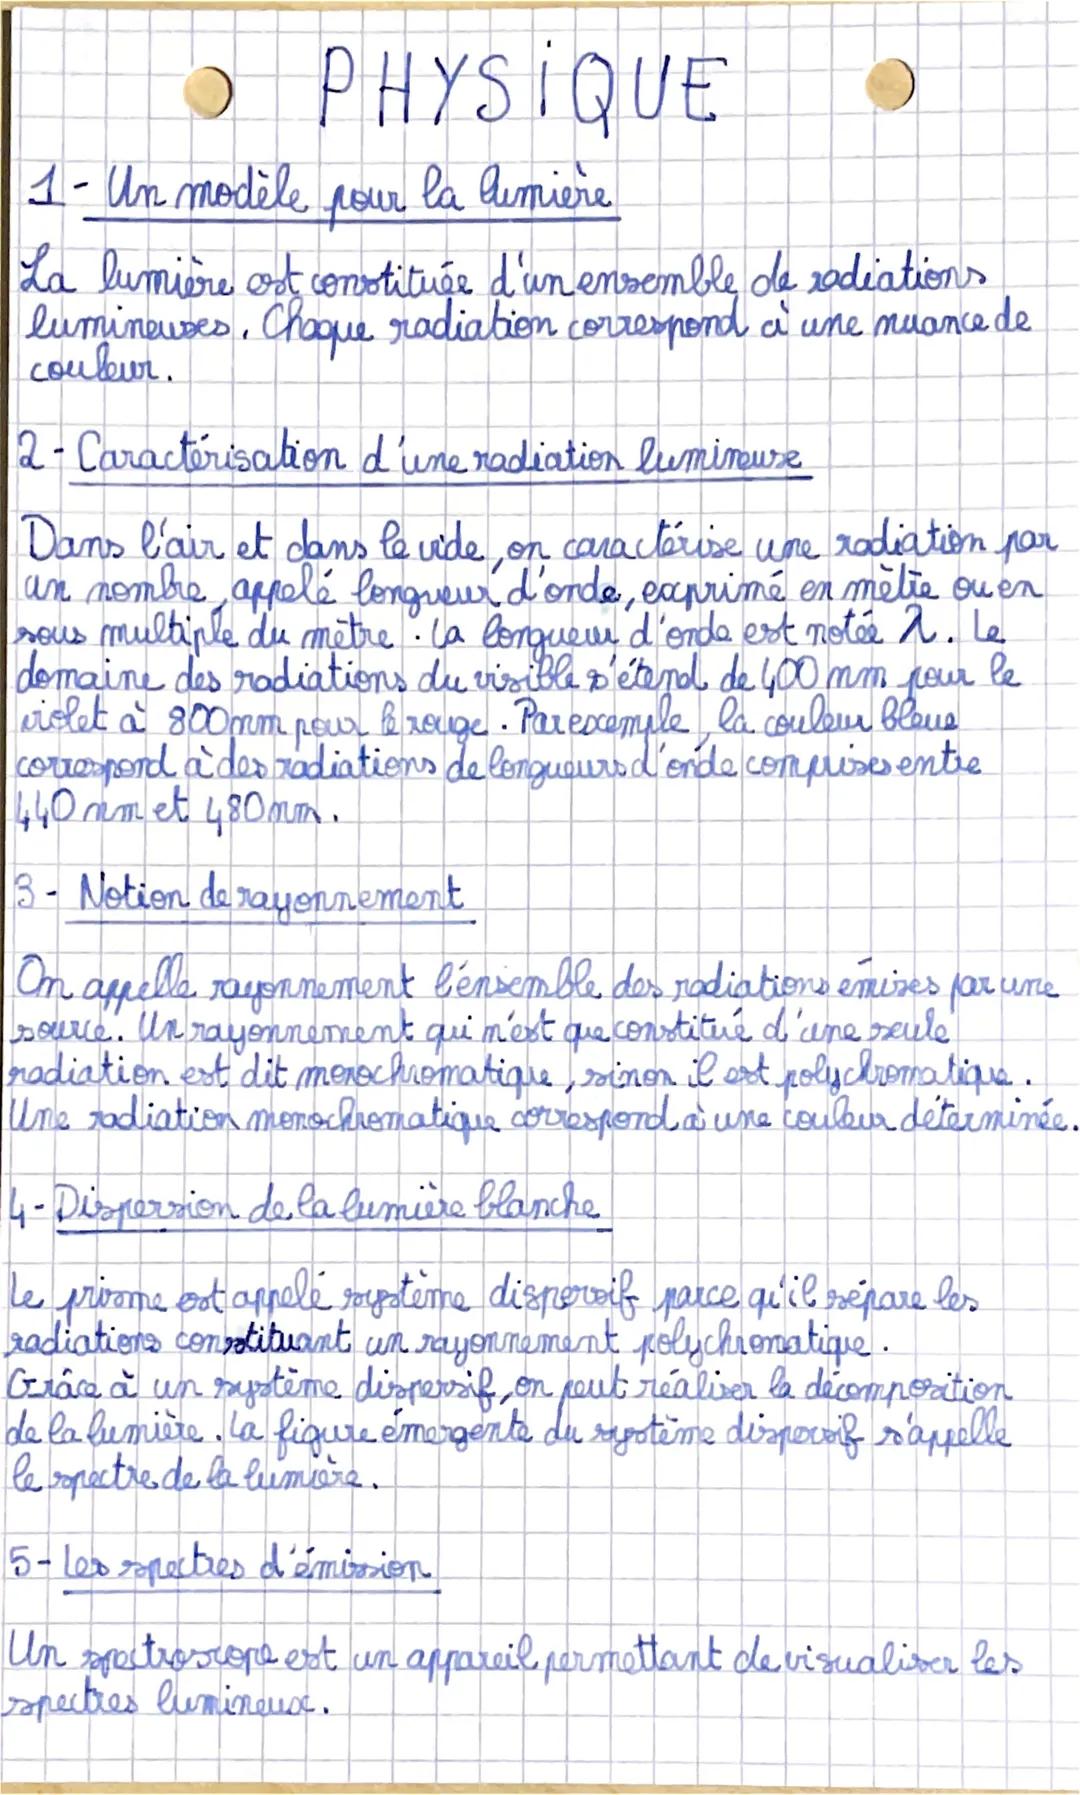 PHYSIQUE
1 - Un modèle pour la lumière
La lumière est constituée d'un ensemble de radiations
lumineuses. Chaque radiation correspond à une nuance de
couleur.
2 - Caractérisation d'une radiation lumineuse
Dans l'air et dans le vide, on caractérise une radiation par
un nombre, appelé longueur d'onde, exprimé en mètre ou en
sous multiple du mètre. La longueur d'onde est notée λ. Le
domaine des radiations du visible s'étend de 400 nm pour le
violet à 800nm pour le rouge. Par exemple, la couleur bleue
correspond à des radiations de longueurs d'onde comprises entre
440 nm et 480nm.
3 - Notion de rayonnement
On appelle rayonnement l'ensemble des radiations émises par une
source. Un rayonnement qui n'est que constitué d'une seule
radiation est dit monochromatique, sinon il est polychromatique.
Une radiation monochromatique correspond à une couleur déterminée.
4 - Dispersion de la lumière blanche
Le prisme est appelé système dispersif parce qu'il sépare les
radiations constituant un rayonnement polychromatique.
Grâce à un système dispersif, on peut réaliser la décomposition
de la lumière. La figure émergente du système dispersif s'appelle
le spectre de la lumière.
5 - Les spectres d'émission
Un spectroscope est un appareil permettant de visualiser les
spectres lumineux.